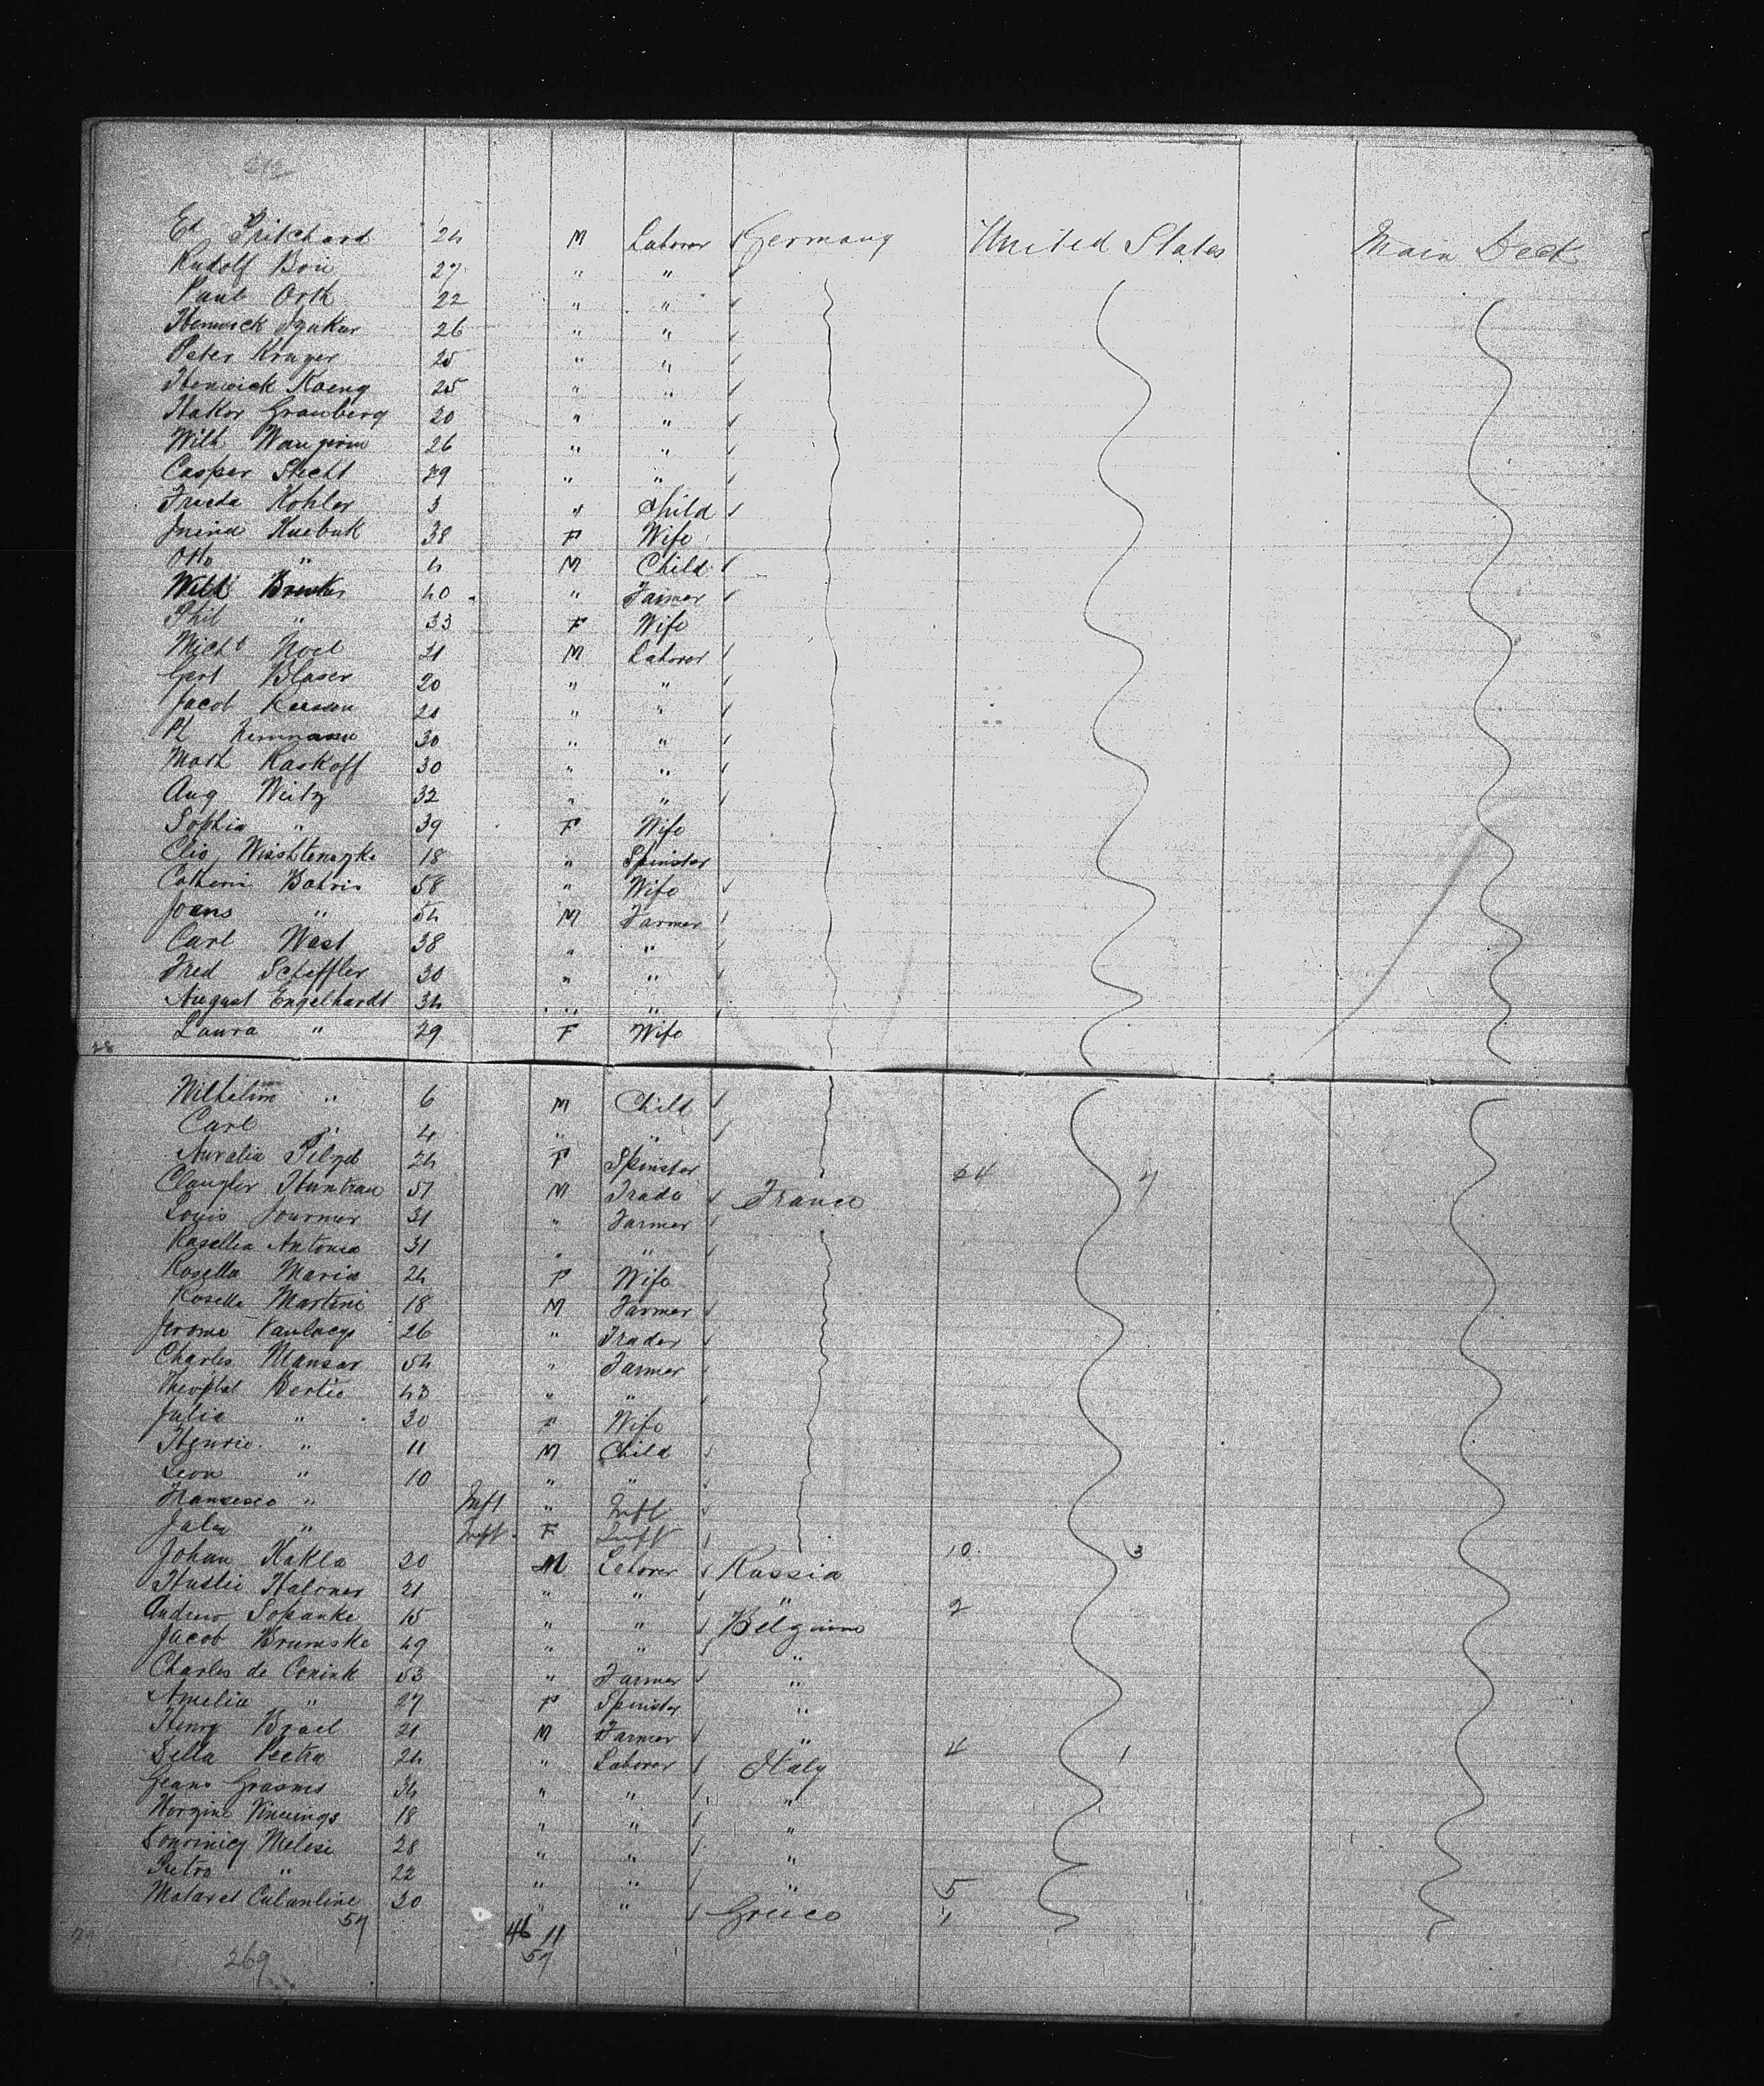 Ed Pritchard 24 M Laborer Germany United States Main Deck
Rudolf Boie 27 " "
Paul Orth 22 " "
Henrick 26 " "
Peter Kruger 25 " "
Henrick Koenig 25 " "
Hakor Granberg 20 " "
Wilh Wangerin 26 " "
Casper Stecht 29 " "
Frieda Kohler 3 " Child
38 F Wife
Otto " 4 M Child
Wilh 40 " Farmer
Phil " 33 F Wife
Michl Noel 21 M Laborer
Gert Blaser 20 " "
Jacob 21 " "
30 " "
Math Raskoff 30 " "
Aug Weitz 32 " "
Sophia " 39 F Wife
18 " Spinster
Catherin Bohris 58 " Wife
Joens " 54 M Farmer
Carl Wast 38 " "
Fred Scheffler 30 " "
August Engelhardt 34 " "
Laura " 29 F Wife
28
Wilhelm " 6 M Child
Carl " 4 " "
Auralia Pilzel 24 F Spinster 24 7
57 M Trade France
Louis Journer 31 " Farmer
Rasellia Antonia 31 " "
Rosella Maria 24 F Wife
Rosella Martini 18 M Farmer
Jerome 26 " Trader
Charles Mansar 54 " Farmer
Theophal Bertie 43 " "
Julia " 30 F Wife
Henrie " 11 M Child
Leon " 10 " "
Francisco " Inft " Inft
" Inft F Inft
Johan Hakla 20 M Laborer Russia 10 3
Haloner 21 " " "
Andrew Sopanke 15 " " Belgium 2
Jacob Brumske 49 " " "
Charles de Conink 53 " Farmer "
Amelia " 27 F Spinster "
Henry Brael 21 M Farmer "
Della Peetra 24 " Laborer Italy 4 1
Geano Grasmes 34 " " "
18 " " "
Dominicy Melesi 28 " " "
Pietro " 22 " " "
Mataret Culanline 30 " " Greece 5
57 1
46 11
57
269